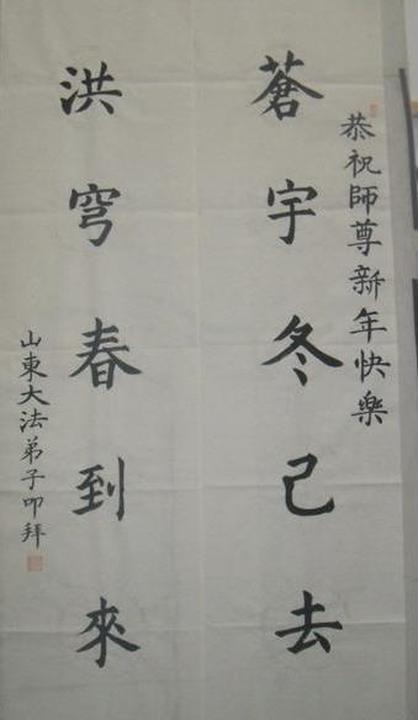 恭祝師尊新年快樂
蒼宇冬己去
洪穹春到來
山東大法弟子叩拜